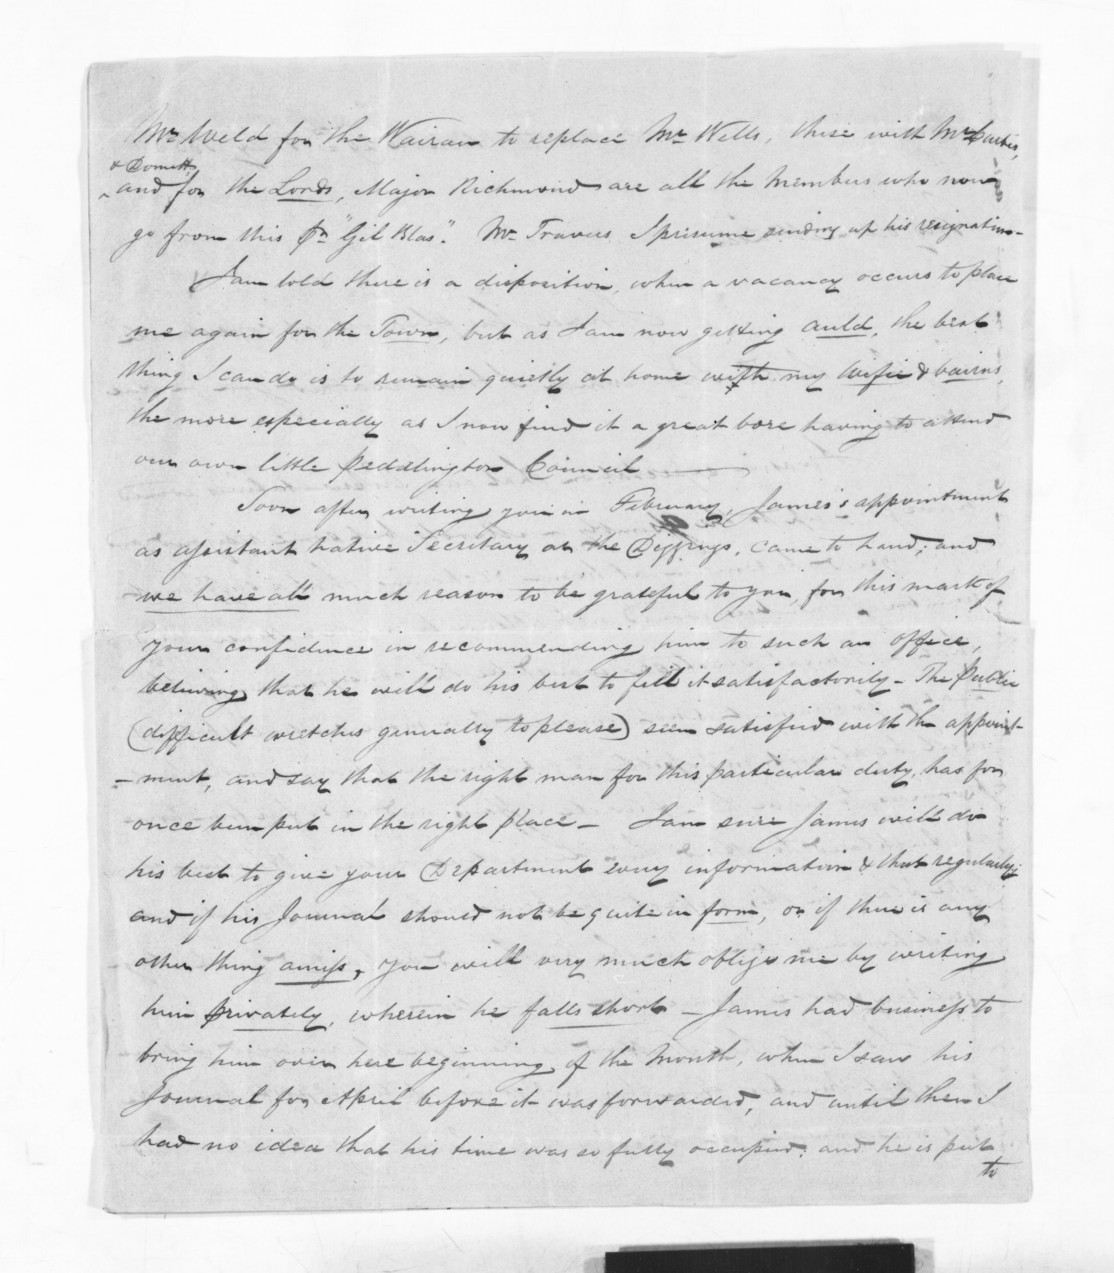 Mr Weld for the Wairau to replace Mr Wells, these with Mr Curtis,
& Domett,
and for the Lords, Major Richmond are all the Members who now
go from this pr "Gil Blas". Mr Travers I presume sending up his resignation—
I am told there is a disposition, when a vacancy occurs to place
me again for the Town, but as I am now getting auld, the best
thing I can do is to remain quietly at home with my Wifie & bairns,
the more especially as I now find it a great bore having to attend
our own little Peddlington Council ———
Soon after writing you in February, James's appointment
as assistant Native Secretary at the Diggings, came to hand; and
we have all much reason to be grateful to you, for this mark of
your confidence in recommending him to such an office,
believing that he will do his best to fill it satisfactorily – The Public
(difficult wretches generally to please) seem satisfied with the appoint-
-ment, and say that the right man for this particular duty, has for
once been put in the right place – I am sure James will do
his best to give your Department every information & that regularly;
and if his Journal should not be quite in form, or if there is any
other thing amiss, you will very much oblige me by writing
him privately, wherein he falls short – James had business to
bring him over here beginning of the Month, when I saw his
Journal for April before it was forwarded, and until then I
had no idea that his time was so fully occupied; and he is put
to